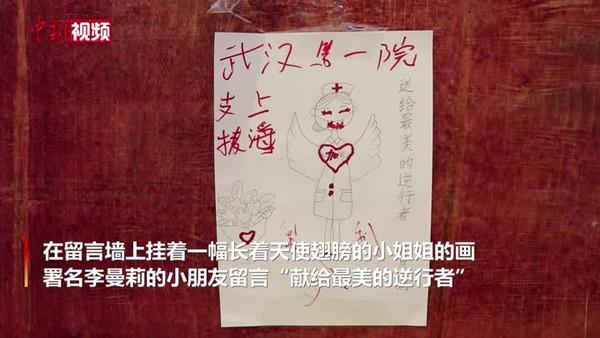 中新视频
武汉第一院
支上
援海
加
送给最美的逆行者
在留言墙上挂着一幅长着天使翅膀的小姐姐的画
署名李曼莉的小朋友留言“献给最美的逆行者”